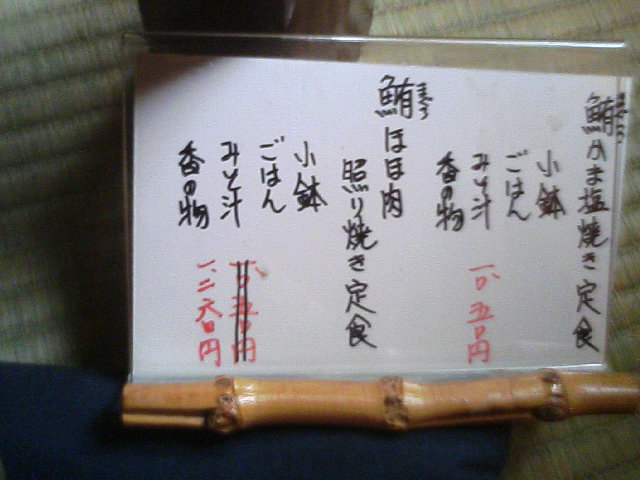 鮪かま塩焼き定食
まぐろ
小鉢
ごはん
みそ汁
香の物
一、〇五〇円
鮪ほほ肉
まぐろ
照り焼き定食
小鉢
ごはん
みそ汁
香の物
一、〇五〇円
一、二六〇円